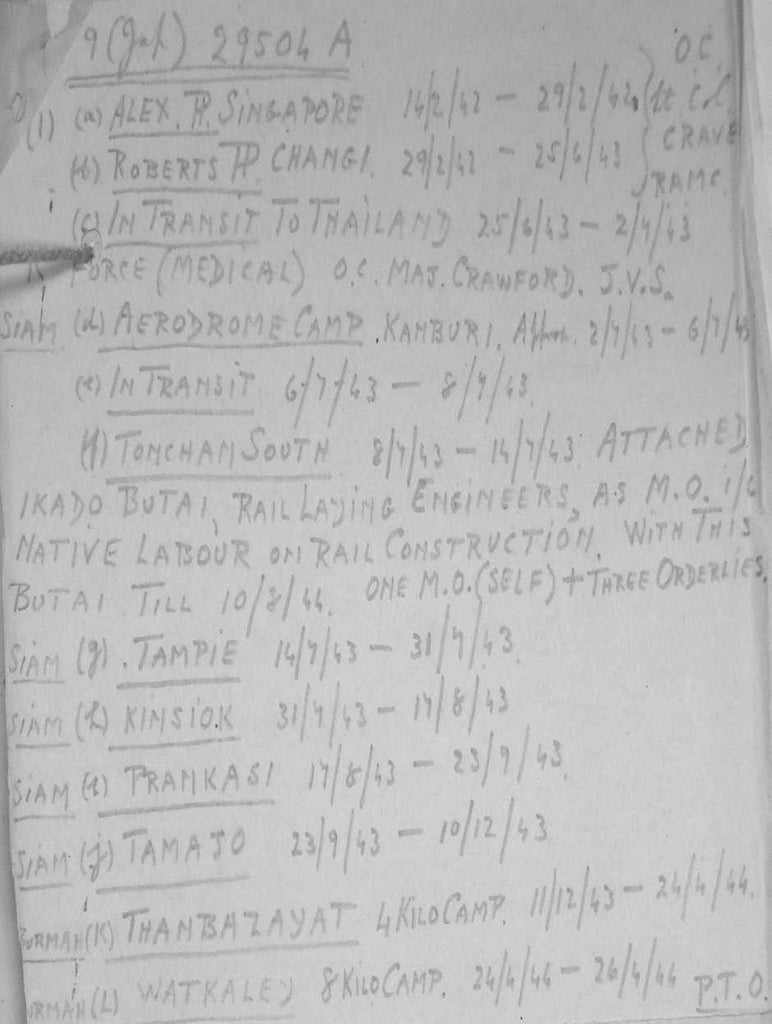 9 (Jap) 29504 A
O.C.
(1) (a) ALEX. SINGAPORE 14/2/42 – 29/2/42 Lt C.L.
(b) ROBERTS CHANGI. 29/2/42 – 25/6/43 CRAVE
RAMC.
(c) IN TRANSIT TO THAILAND 25/6/43 – 2/7/43
FORCE (MEDICAL) O.C. MAJ. CRAWFORD. J.V.S.
SIAM (d) AERODROME CAMP. KANBURI. 2/7/43 – 6/7/43
(e) IN TRANSIT 6/7/43 – 8/7/43.
(f) TONCHAN SOUTH 8/7/43 – 14/7/43. ATTACHED
IKADO BUTAI, RAIL LAYING ENGINEERS, AS M.O. i/c
NATIVE LABOUR ON RAIL CONSTRUCTION. WITH THIS
BUTAI TILL 10/8/44. ONE M.O. (SELF) + THREE ORDERLIES.
SIAM (g). TAMPIE 14/7/43 – 31/7/43.
SIAM (h) KINSIOK 31/7/43 – 17/8/43
SIAM (i) PRANKASI 17/8/43 – 23/9/43.
SIAM (j) TAMAJO 23/9/43 – 10/12/43
BURMAH (K) THANBAZAYAT 4 KILO CAMP. 11/12/43 – 24/4/44.
BURMAH (L) WATKALEY 8 KILO CAMP. 24/4/44 – 26/4/44 P.T.O.